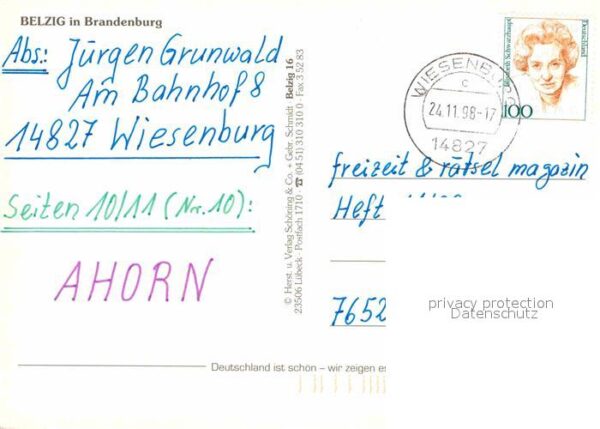 BELZIG in Brandenburg
Abs.: Jürgen Grunwald
Am Bahnhof 8
14827 Wiesenburg
Seiten 10/11 (Nr. 10):
AHORN
© Herst. u. Verlag Schöning & Co. + Gebr. Schmidt Belzig 16
23506 Lübeck · Postfach 1710 · ☎ (04 51) 310 310 0 · Fax 3 52 83
WIESENBURG
c
24.11.98-17
14827
Elisabeth Schwarzhaupt
Deutschland
100
freizeit & rätsel magazin
Heft
7652
privacy protection
Datenschutz
Deutschland ist schön – wir zeigen es